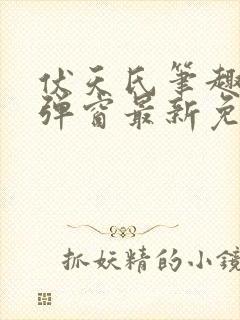 伏天氏笔趣
弹窗最新免
抓妖精的小镜